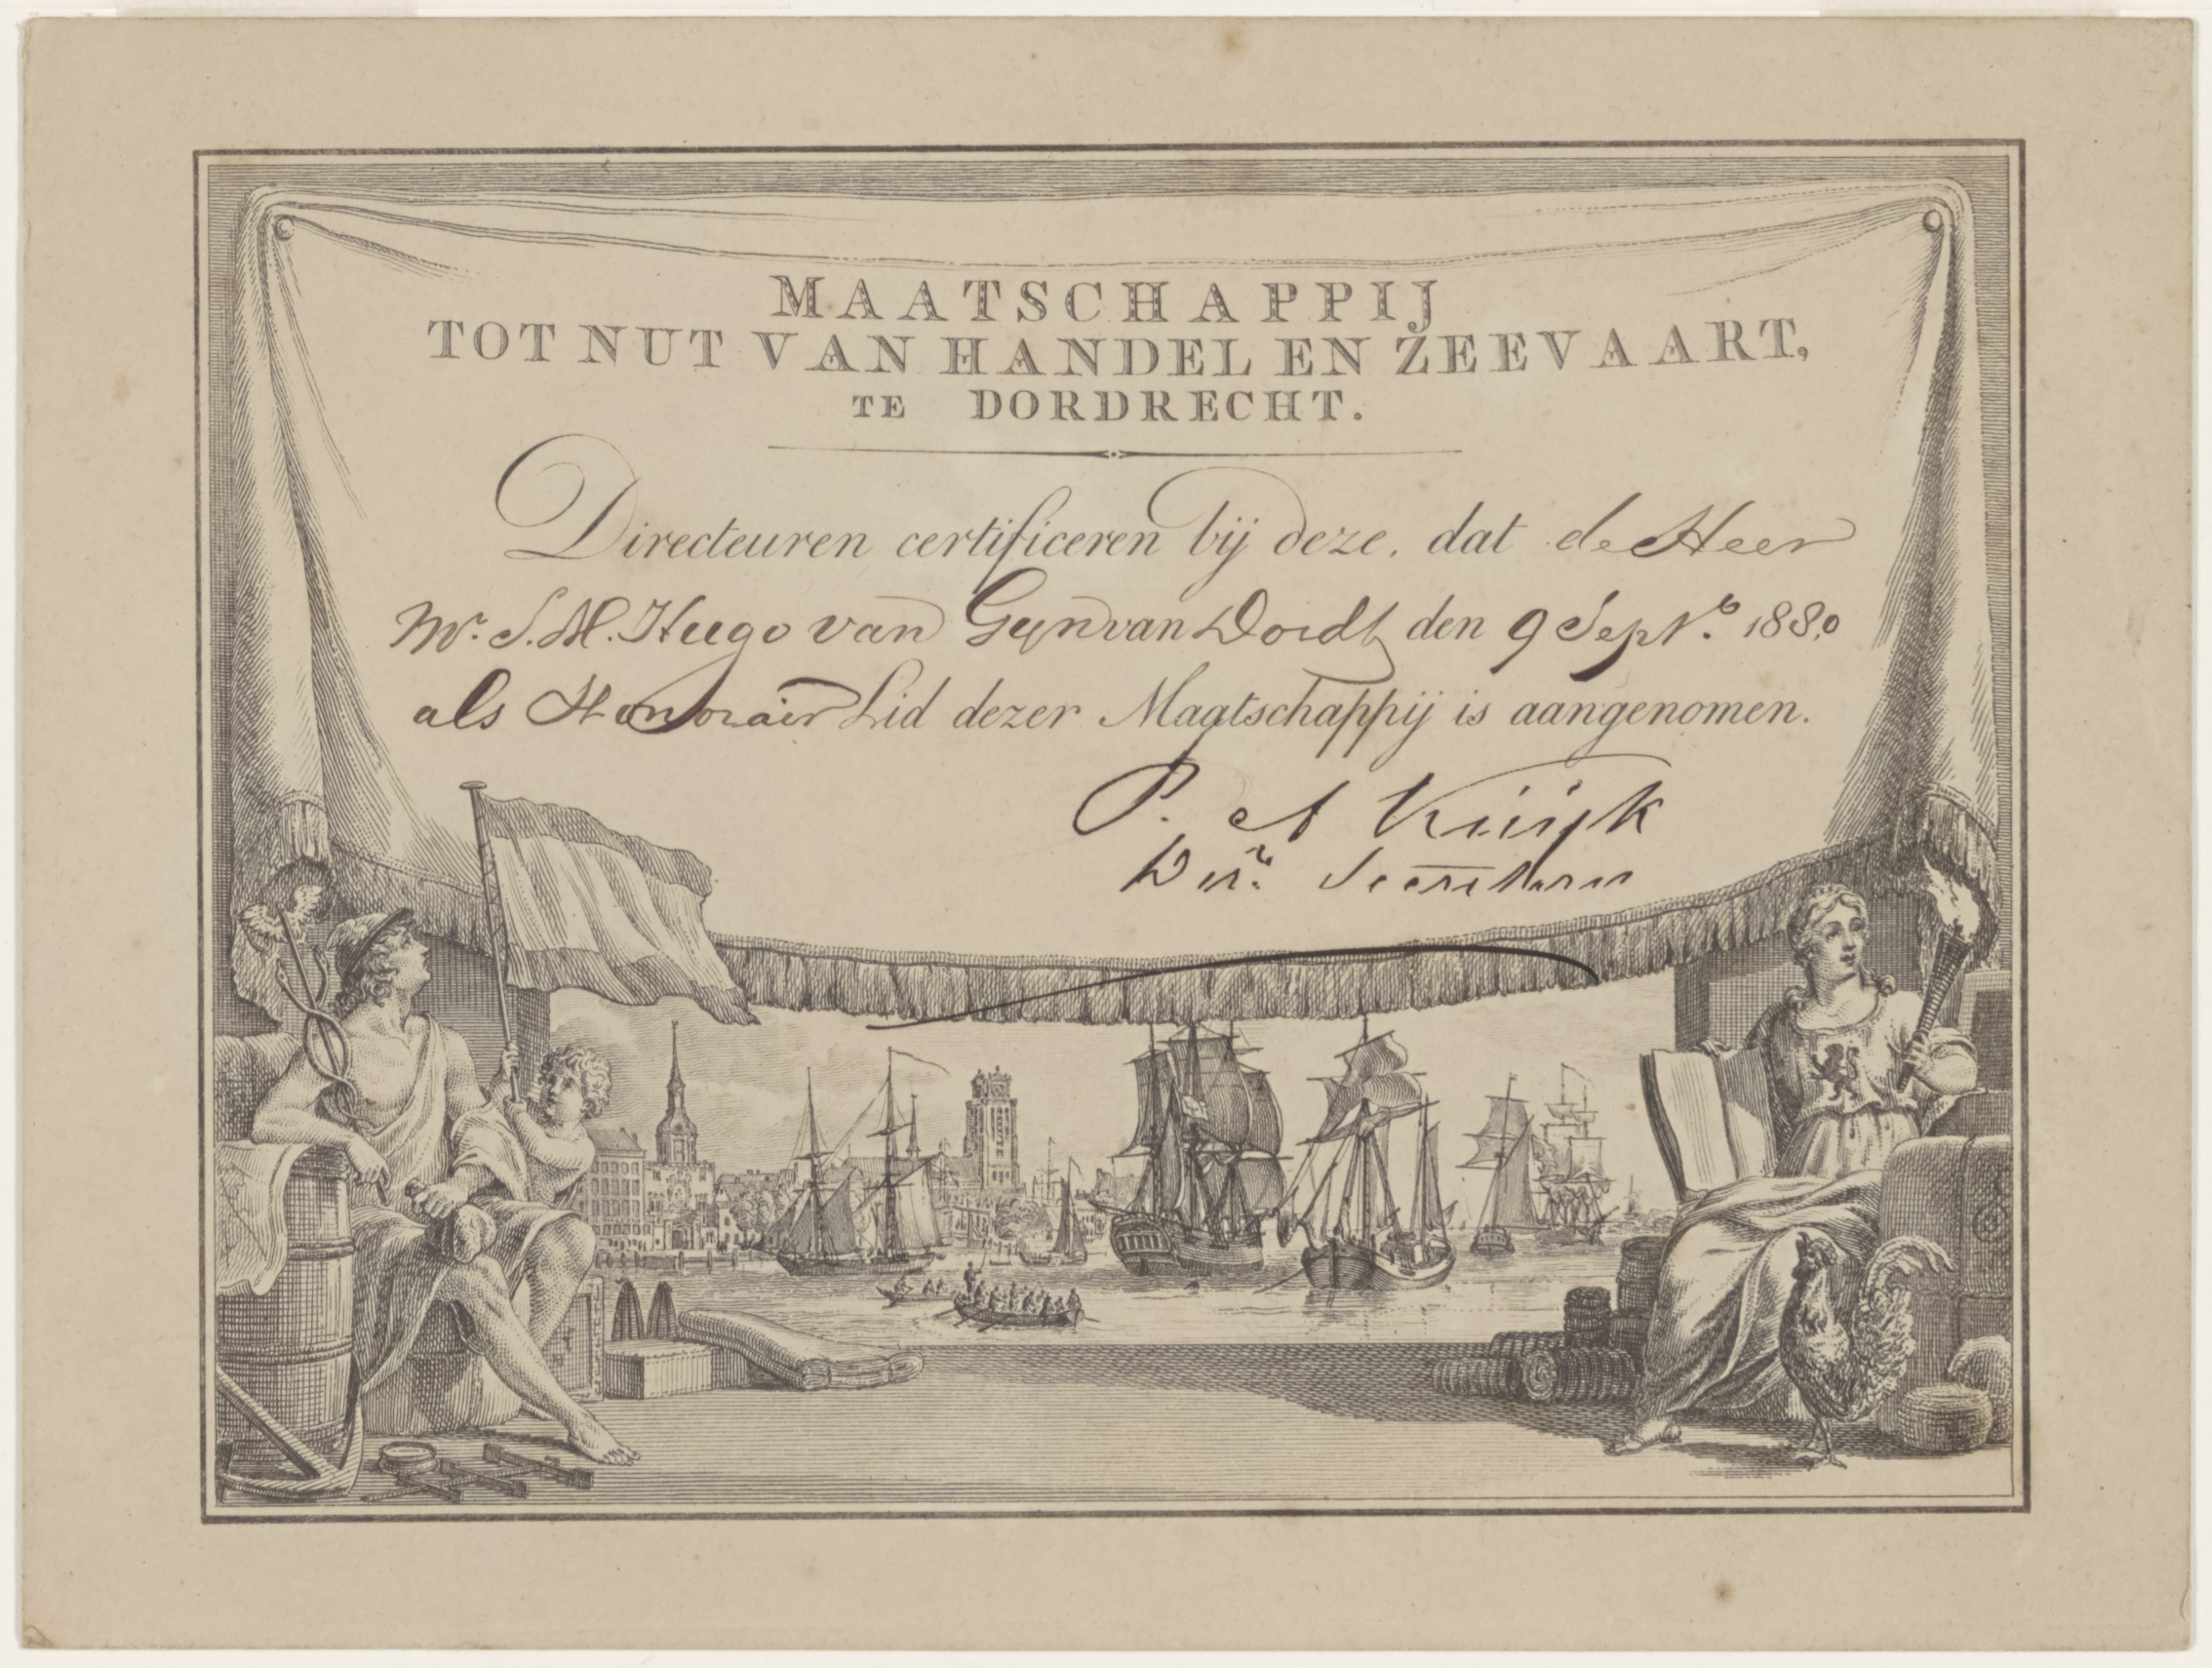 MAATSCHAPPIJ
TOT NUT VAN HANDEL EN ZEEVAART,
TE DORDRECHT.
Directeuren certificeren bij deze, dat de Heer
Mr. S. M. Hugo van Gijn van Dordt den 9 Septr. 1880
als Honorair Lid dezer Maatschappij is aangenomen.
P. A Kuijk
Dirr. Secretaris